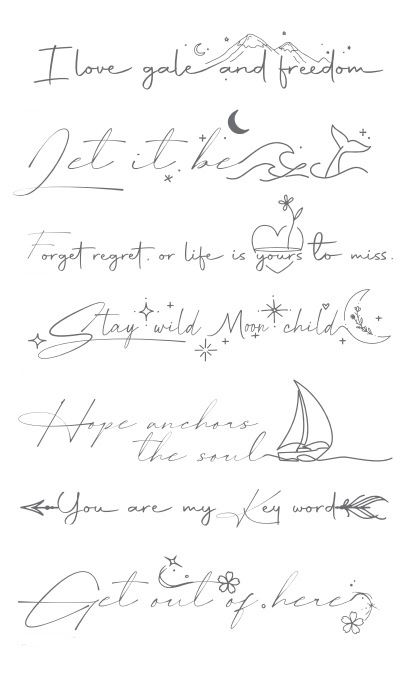 I love gale and freedom
Let it be
Forget regret. or life is yours to miss.
Stay wild Moon child
Hope anchors
the soul
You are my Key word
Get out of here